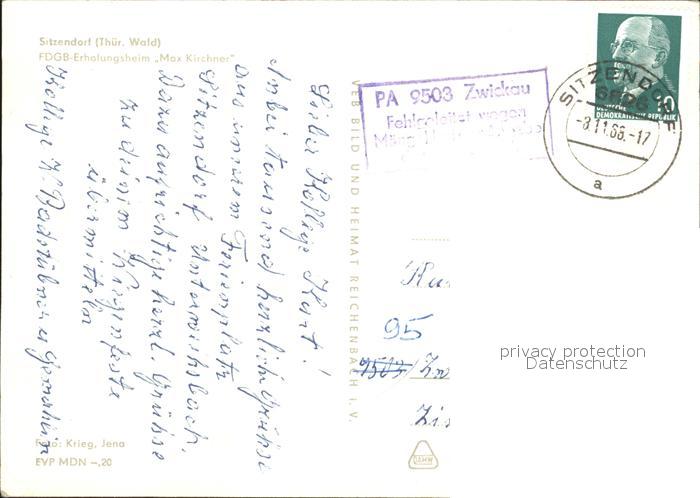 Sitzendorf (Thür. Wald)
FDGB-Erholungsheim „Max Kirchner"
Lieber Kollege Kurt!
Anbei tausend herzliche Grüsse
aus unserem Ferienplatz
Sitzendorf Unterweissbach.
Dazu aufrichtige herzl. Grüsse
zu deinem Wiegenfeste
übermitteln
Kollege K. u Gemahlin
Foto: Krieg, Jena
EVP MDN –,20
VEB BILD UND HEIMAT REICHENBACH I. V.
PA 9503 Zwickau
Fehlgeleitet wegen
SITZENDORF
-8.11.66.-17
a
DEUTSCHE
DEMOKRATISCHE REPUBLIK
10
95
9503
privacy protection
Datenschutz